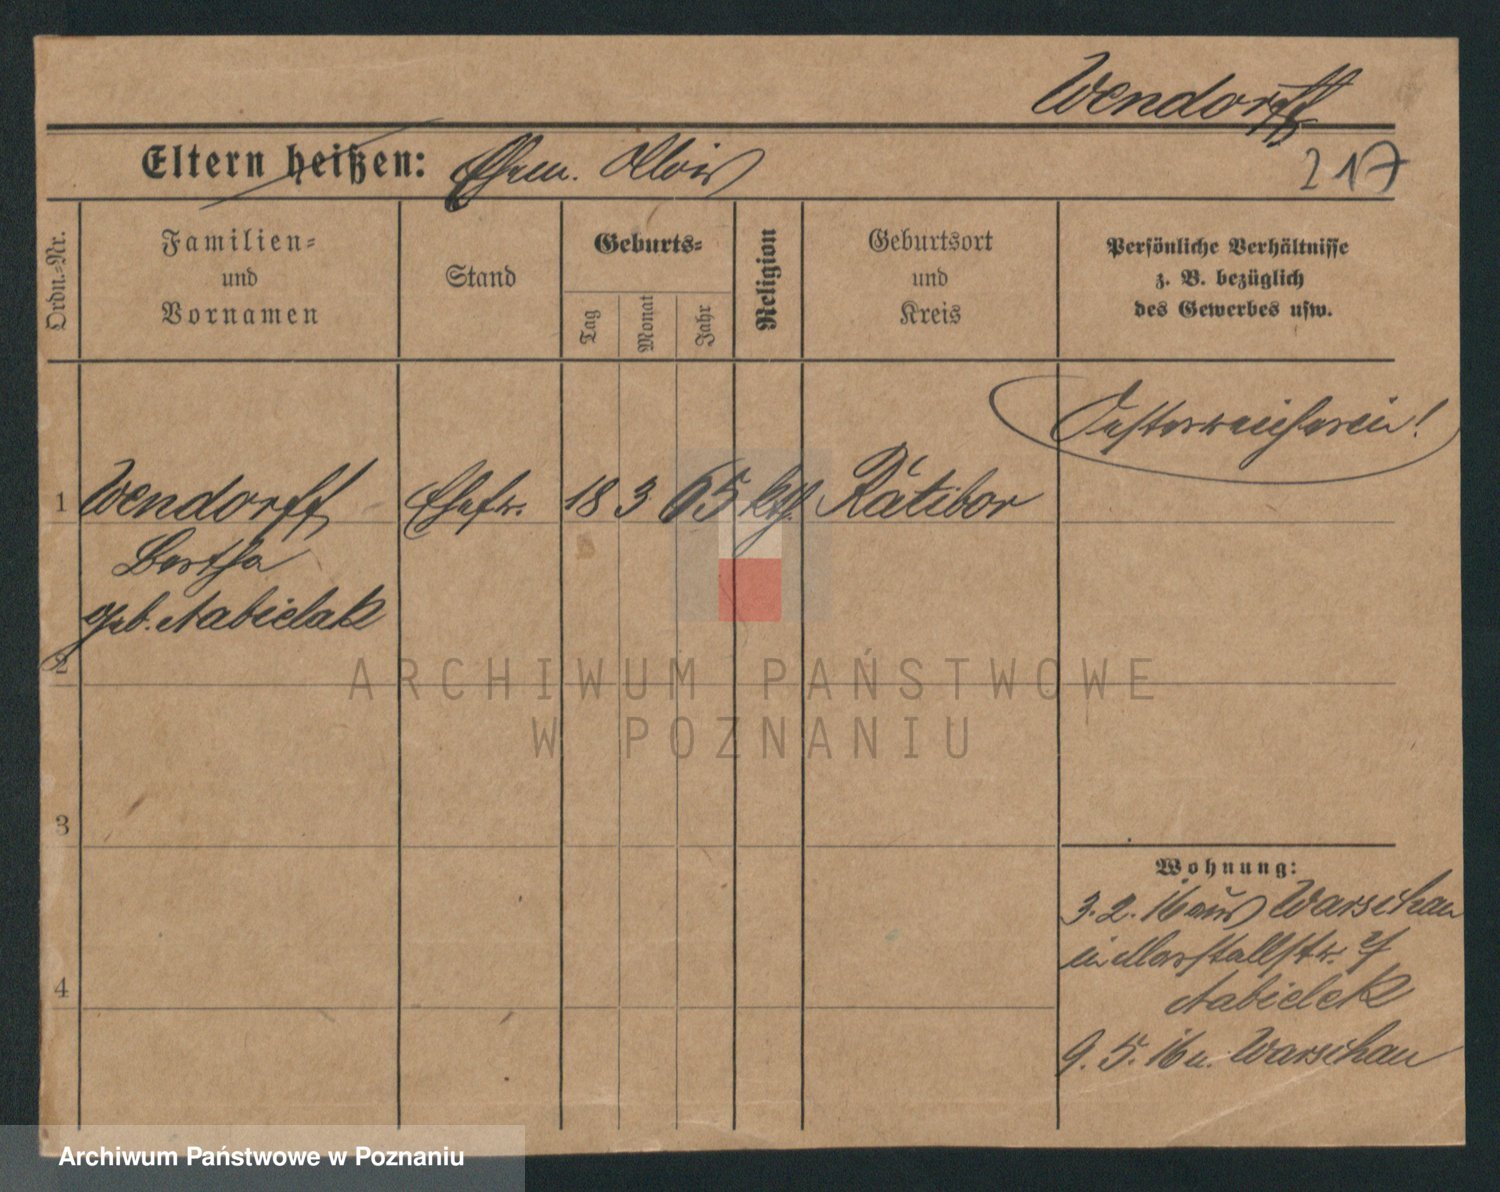 Wendorff
Eltern heißen: Ehem. Alois
217
Ordn.-Nr.
Familien-
und
Vornamen
Stand
Geburts-
Tag
Monat
Jahr
Religion
Geburtsort
und
Kreis
Persönliche Verhältnisse
z. B. bezüglich
des Gewerbes usw.
Oesterreicherin!
1 Wendorff Ehefr. 18 3 65 kth. Ratibor
Bertha
geb. Nabielak
2
3
4
Wohnung:
3. 2. 16 aus Warschau
in Marstallstr.
Nabielek
9. 5. 16 n. Warschau
ARCHIWUM PAŃSTWOWE
W POZNANIU
Archiwum Państwowe w Poznaniu